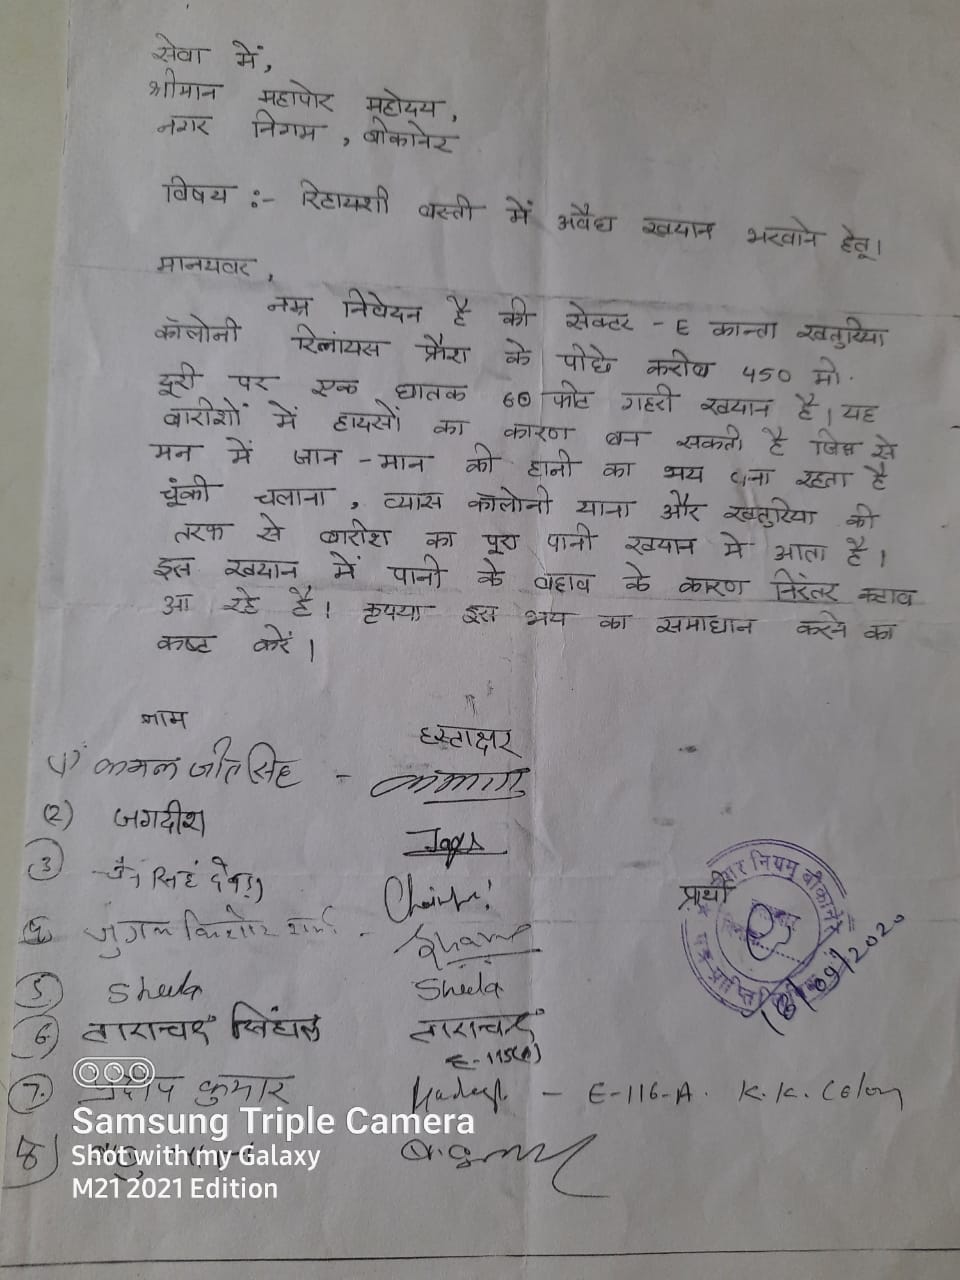 सेवा में,
श्रीमान महापोर महोदय,
नगर निगम, बीकानेर
विषय :- रिहायशी बस्ती में अवैध खयान भरवाने हेतू।
मानयवर,
नम्र निवेदन है की सेक्टर - E कान्ता खतुरिया
कॉलोनी रिलांयस फ्रैश के पीछे करीब 450 मी.
दूरी पर एक घातक 60 फीट गहरी खयान है। यह
बारीशों में हायसों का कारण बन सकती है जिस से
मन में जान - मान की हानी का भय बना रहता है
चूंकी चलाना, व्यास कॉलोनी याना और खतुरिया की
तरफ से बारीश का पूरा पानी खयान मे आता है।
इस खयान में पानी के वहाव के कारण निरंतर कटाव
आ रहे है। कृपया इस भय का समाधान करने का
कष्ट करें।
नाम हस्ताक्षर
(1) कमल जीत सिंह -
(2) जगदीश
(3) सिहं
जुगल किशोर शर्मा -
प्रार्थी
नगर निगम बीकानेर
पत्र प्राप्ति
/09/2020
(5) Sheela Sheela
(6) ताराचन्द सिंघल ताराचन्द
E-115(A)
(7) प्रदीप कुमार - E-116-A. K.K. Colony
(8)
Samsung Triple Camera
Shot with my Galaxy
M21 2021 Edition